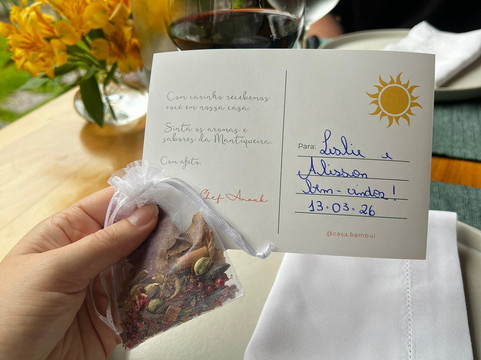 Com carinho recebemos
você em nossa casa.
Sinta os aromas e
sabores da Mantiqueira.
Com afeto,
Chef Anouk
Para: Leslie e
Alisson
bem-vindos!
13.03.26
@casa.bambui